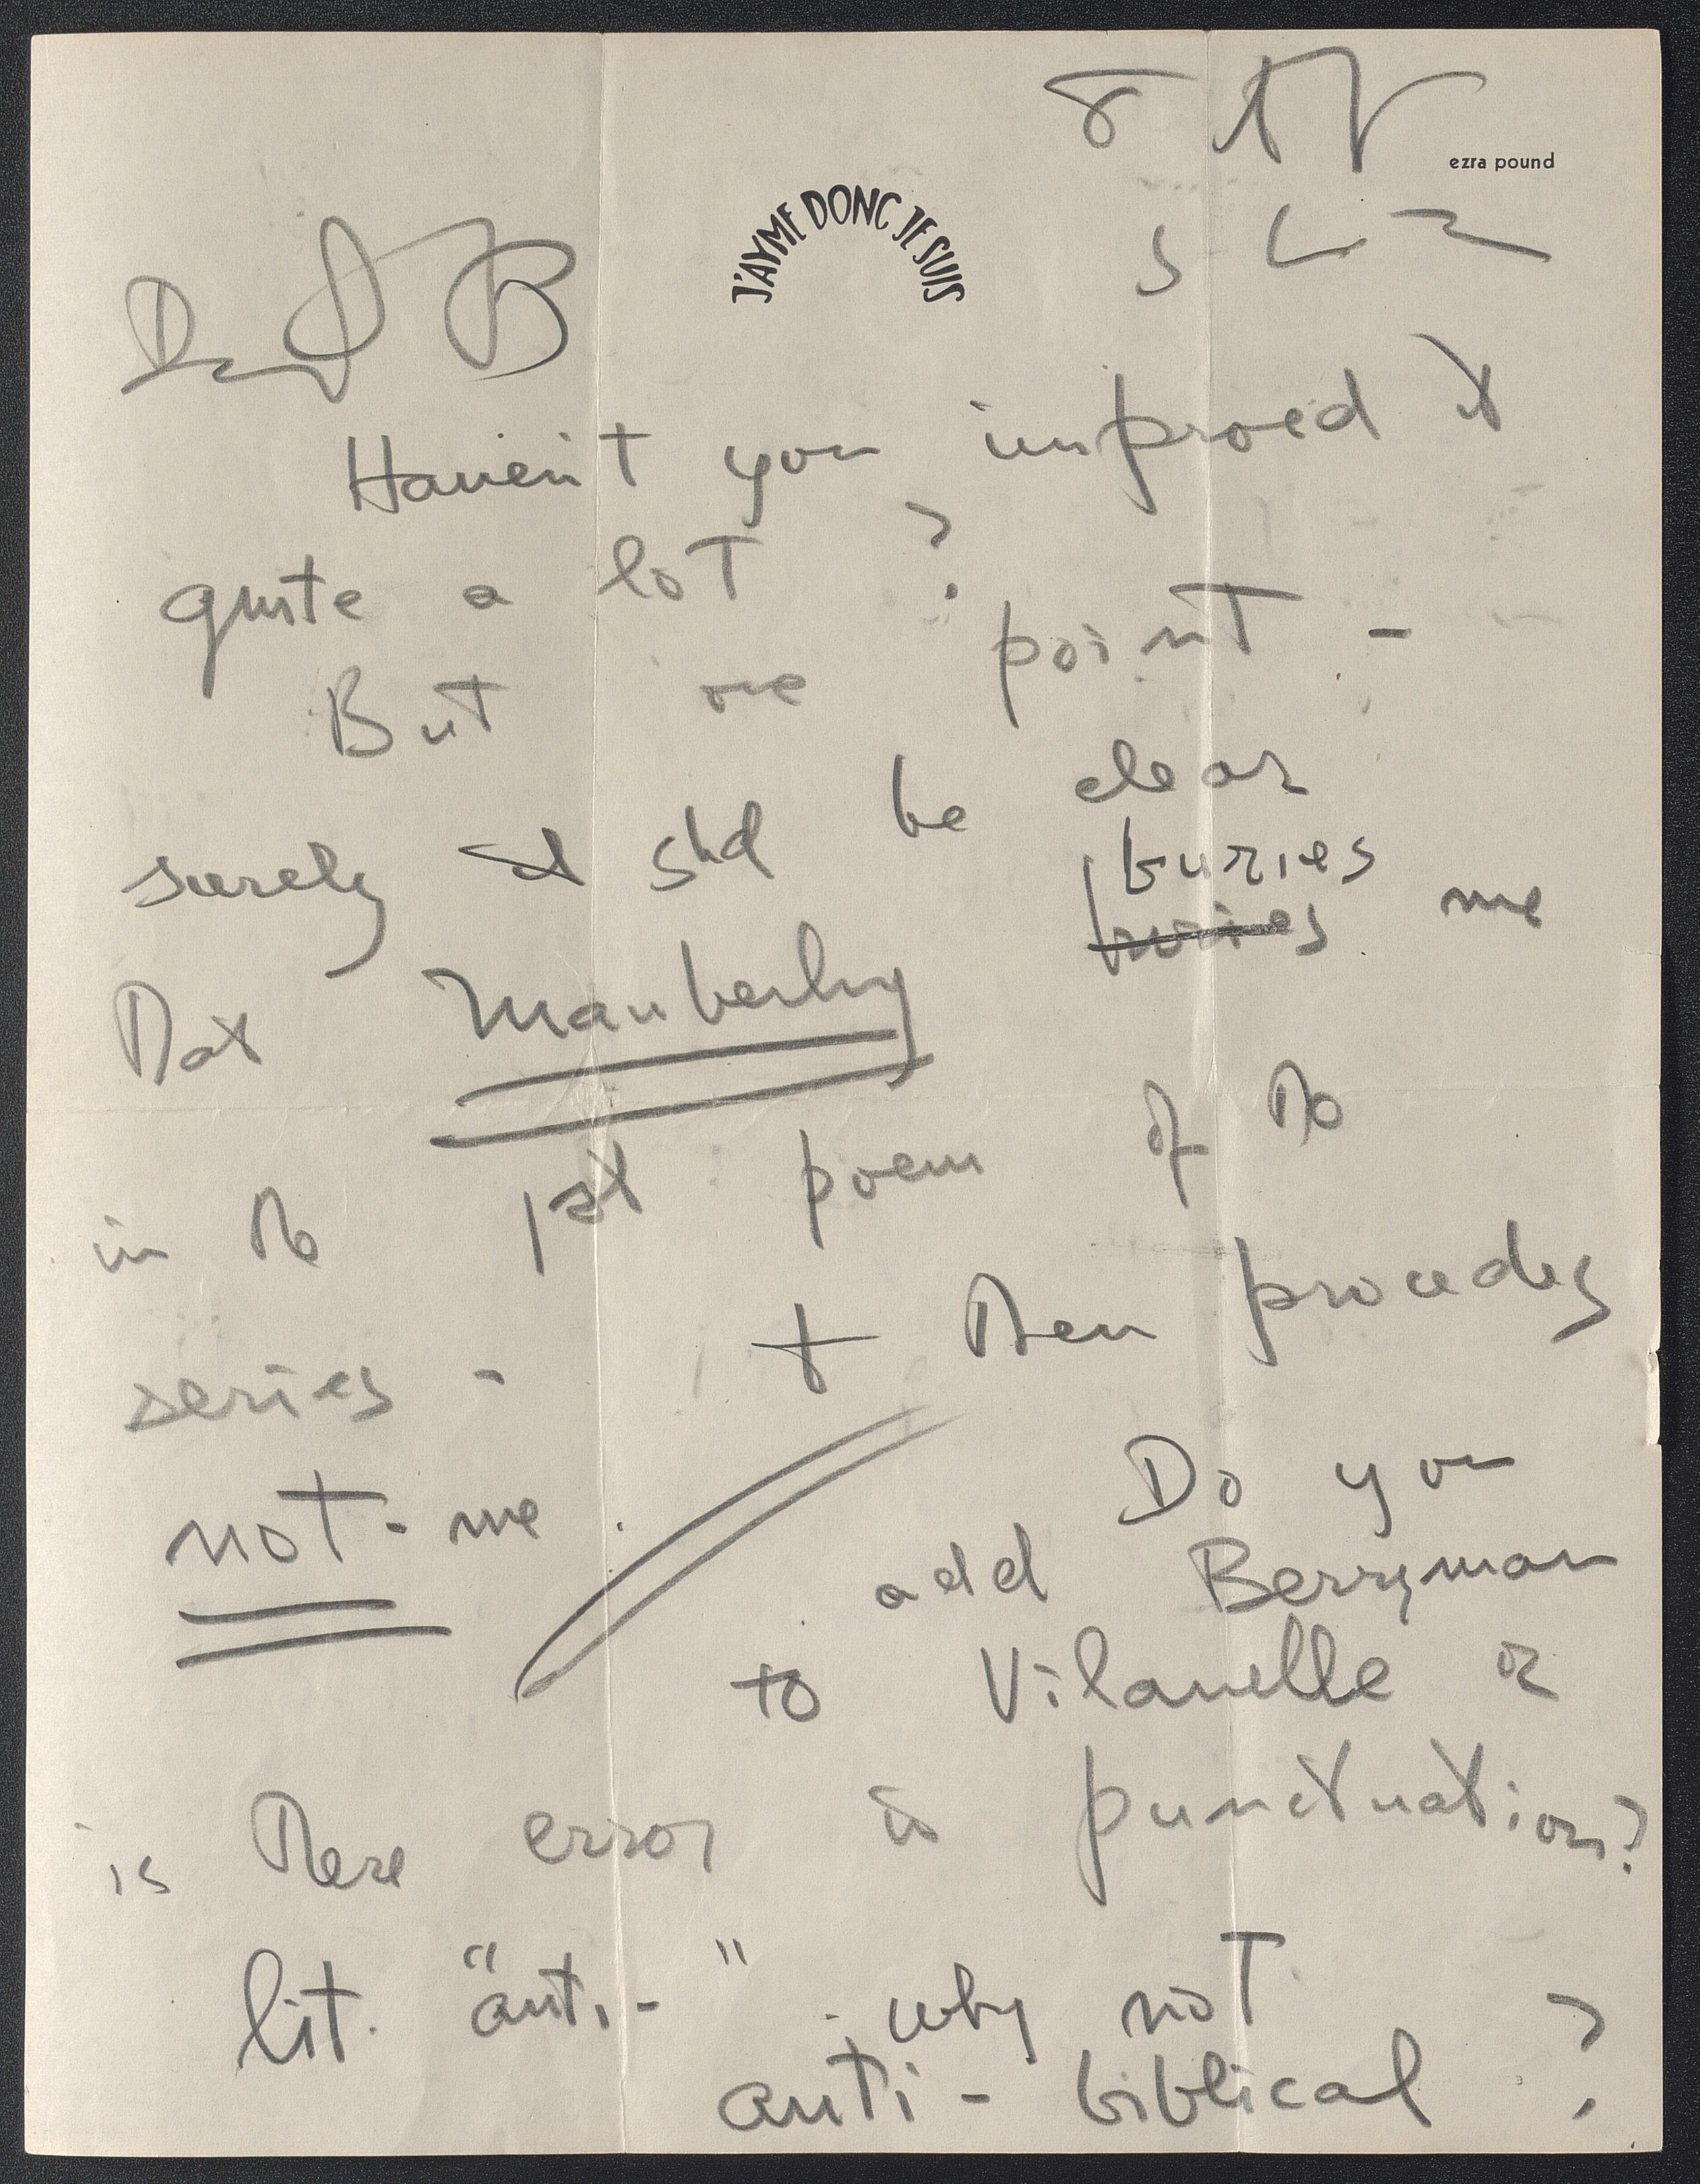 8 Ap
ezra pound
J'AYME DONC JE SUIS
D J B
Haven't you improed it
quite a lot ?
But one point -
surely it shd be clear
buries
Dat Mauberley buries me
in De 1st poem of De
series - + Den procedes
not - me
Do you
add Berryman
to Vilanelle or
is Dere error in punctuation?
lit. "anti- " why not
anti - biblical ?